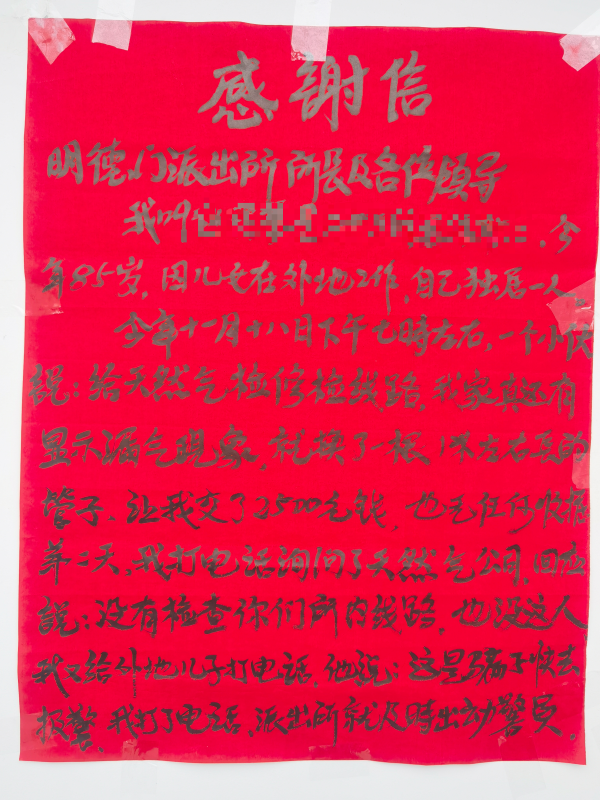 感謝信
明德门派出所所長及各位领导
我叫 今
年85岁，因儿女在外地工作，自己独居一人。
今年十一月十八日下午七時左右，一个小伙
説：给天然气检修检线路，我家真还有
显示漏气现象，就换了一根1米左右长的
管子，让我交了2500元钱，也无任何收据
第二天，我打电话询问了天然气公司，回应
説：没有检查你们所内线路，也没这人
我又给外地儿子打电话，他説：这是骗子快去
报警，我打了电话，派出所就及時出动警员，